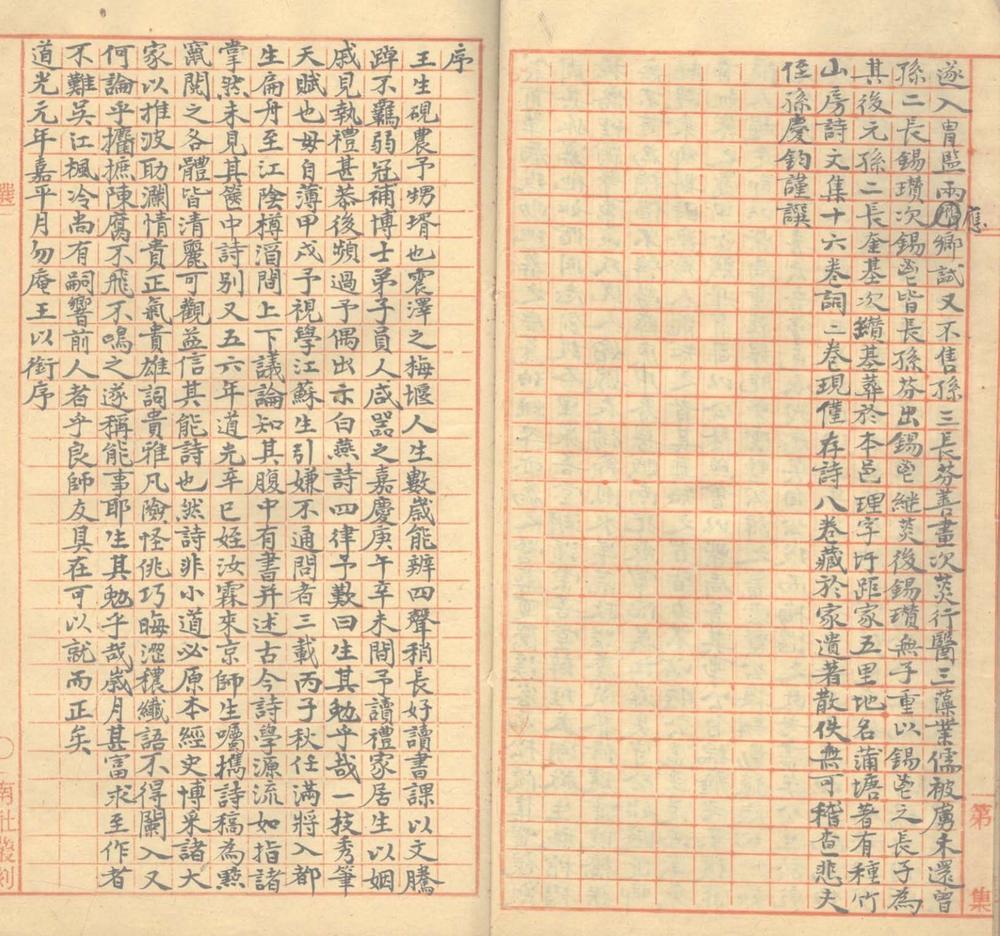 遂入胄監兩應鄉試又不售孫三長芬善畫次荄行醫三藻業儒被虜未還曾
孫二長錫瓚次錫鬯皆長孫芬出錫鬯繼荄後錫瓚無子重以錫鬯之長子為
其後元孫二長奎基次纘基葬於本邑理字圩距家五里地名蒲塘著有種竹
山房詩文集十六卷詞二卷現僅存詩八卷藏於家遺著散佚無可稽查悲夫
侄孫慶鈞謹譔
第 集
序
王生硯農予甥壻也震澤之梅堰人生數歲能辨四聲稍長好讀書課以文騰
踔不羈弱冠補博士弟子員人咸器之嘉慶庚午辛未間予讀禮家居生以姻
戚見執禮甚恭後頻過予偶出示白燕詩四律予歎曰生其勉乎哉一枝秀筆
天賦也毋自薄甲戌予視學江蘇生引嫌不通問者三載丙子秋任滿將入都
生扁舟至江陰樽酒間上下議論知其腹中有書并述古今詩學源流如指諸
掌然未見其篋中詩别又五六年道光辛巳姪汝霖來京師生囑攜詩稿為點
竄閱之各體皆清麗可觀益信其能詩也然詩非小道必原本經史博采諸大
家以推波助瀾情貴正氣貴雄詞貴雅凡險怪佻巧晦澀穠纖語不得闌入又
何論乎攟摭陳腐不飛不鳴之遂稱能事耶生其勉乎哉歲月甚富求至作者
不難吳江楓冷尚有嗣響前人者乎良師友具在可以就而正矣
道光元年嘉平月勿庵王以銜序
選
南社叢刻